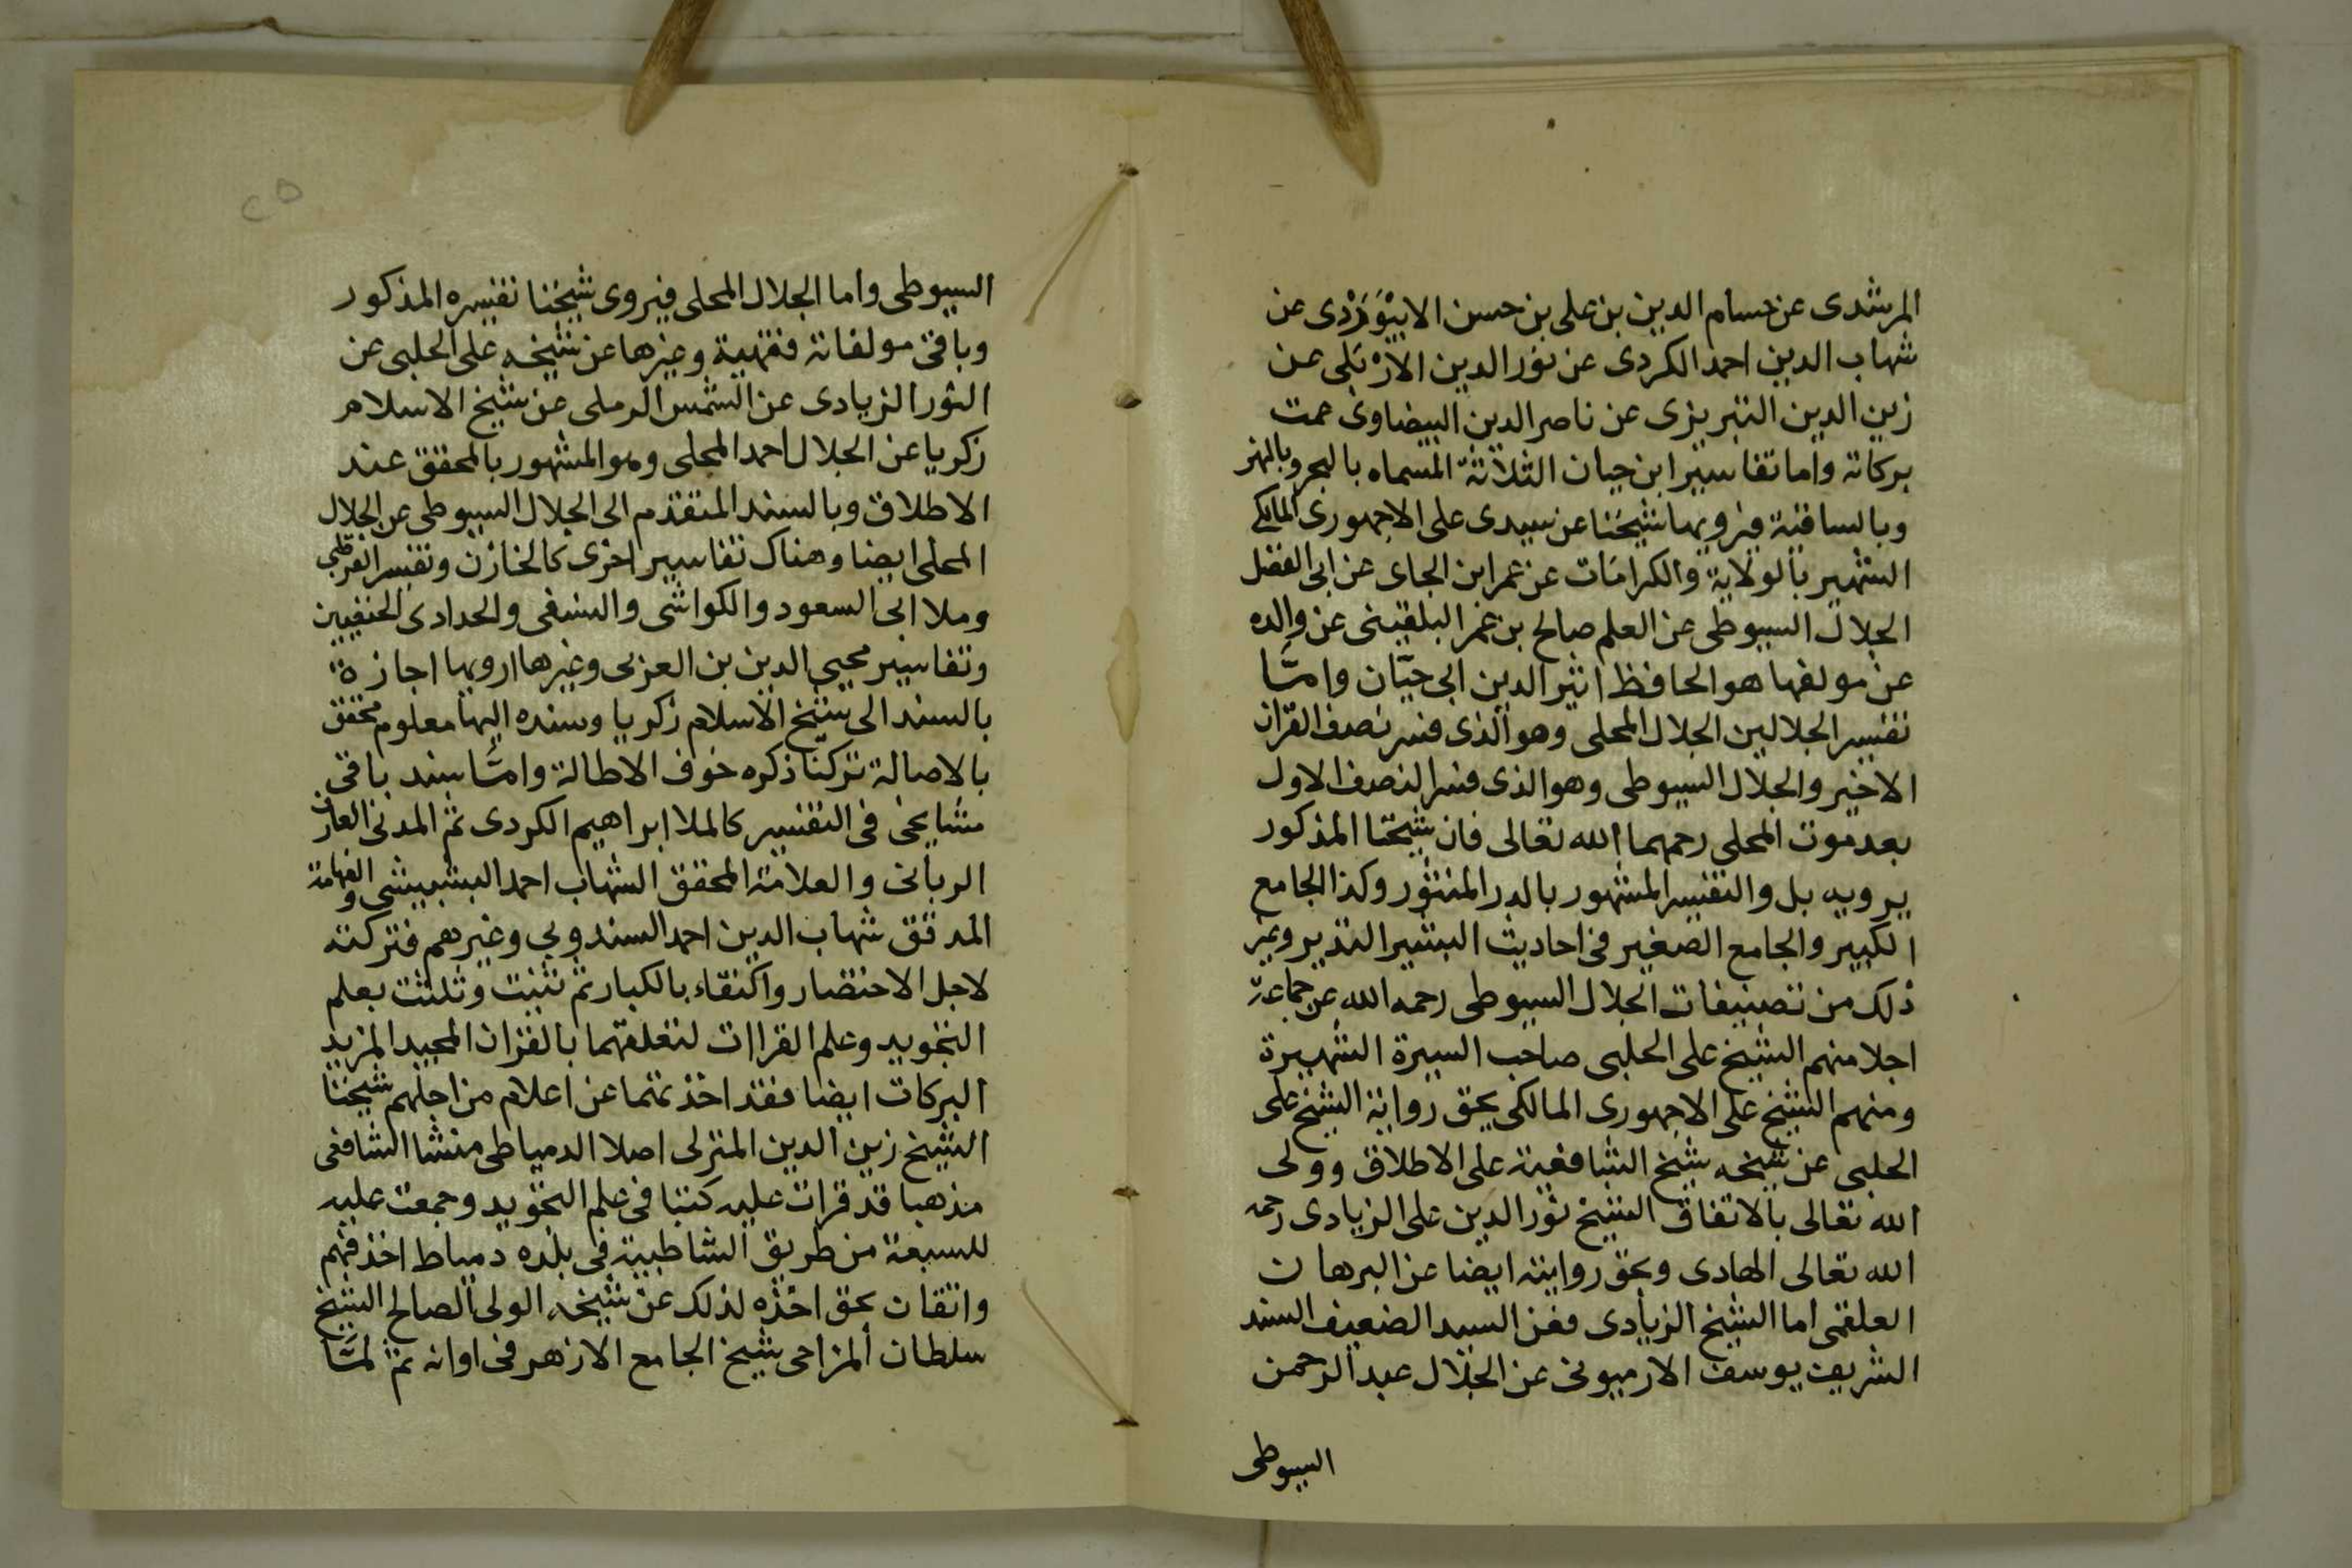 المرشدى عن حسام الدين بن على بن حسن الابيْوَرْدى عن
شهاب الدين احمد الكردى عن نور الدين الارْبَلى عن
زين الدين التبريزى عن ناصر الدين البيضاوى عمت
بركاته واما تفاسير ابن حيان الثلاثة المسماه بالبحر وبالنهر
وبالساقية فيرويها شيخنا عن سيدى على الاجهورى المالكى
الشهير بالولاية والكرامات عن عمر ابن الجاى عن ابى الفضل
الجلال السيوطى عن العلم صالح بن عمر البلقينى عن والده
عن مولفها هو الحافظ اثير الدين ابى حيّان وامَّا
تفسير الجلالين الجلال المحلى وهو الذى فسر نصف القران
الاخير والجلال السيوطى وهو الذى فسر النصف الاول
بعد موت المحلى رحمهما الله تعالى فان شيخنا المذكور
يرويه بل والتفسير المشهور بالدر المنثور وكذا الجامع
الكبير والجامع الصغير فى احاديث البشير النذير وغير
ذلك من تصنيفات الجلال السيوطى رحمه الله عن جماعة
اجلا منهم الشيخ على الحلبى صاحب السيرة الشهيرة
ومنهم الشيخ على الاجهورى المالكى بحق رواية الشيخ على
الحلبى عن شيخه شيخ الشافعية على الاطلاق وولى
الله تعالى بالاتفاق الشيخ نور الدين على الزيادى رحمه
الله تعالى الهادى وبحق روايته ايضا عن البرهان
العلقمى اما الشيخ الزيادى فعن السيد الضعيف السند
الشريف يوسف الارميونى عن الجلال عبد الرحمن
السيوطى
السيوطى واما الجلال المحلى فيروى شيخنا تفسيره المذكور
وباقى مولفاته فقهية وغيرها عن شيخه على الحلبى عن
النور الزيادى عن الشمس الرملى عن شيخ الاسلام
زكريا عن الجلال احمد المحلى وهو المشهور بالمحقق عند
الاطلاق وبالسند المتقدم الى الجلال السيوطى عن الجلال
المحلى ايضا وهناك تفاسير اخرى كالخازن وتفسير القرطبى
وملا ابى السعود والكواشى والنسفى والحدادى الحنفيين
وتفاسير محيى الدين بن العربى وغيرها ارويها اجازة
بالسند الى شيخ الاسلام زكريا وسنده اليها معلوم محقق
بالاصالة تركنا ذكره خوف الاطالة وامَّا سند باقى
مشايخى فى التفسير كالملا ابراهيم الكردى ثم المدنى العارف
الربانى والعلامة المحقق الشهاب احمد البشبيشى والفهامة
المدقق شهاب الدين احمد السندوبى وغيرهم فتركته
لاجل الاختصار واكتفاء بالكبار ثم ثنيت وثلثت بعلم
التجويد وعلم القراات لتعلقهما بالقران المجيد المزيد
البركات ايضا فقد اخذتهما عن اعلام من اجلهم شيخنا
الشيخ زين الدين المنزلى اصلا الدمياطى منشا الشافعى
مذهبا قد قرات عليه كتبا فى علم التجويد وجمعت عليه
للسبعة من طريق الشاطبية فى بلده دمياط اخذ فهم
واتقان بحق اخذه لذلك عن شيخه الولى الصالح الشيخ
سلطان المزاحى شيخ الجامع الازهر فى اوانه ثم لمَّا